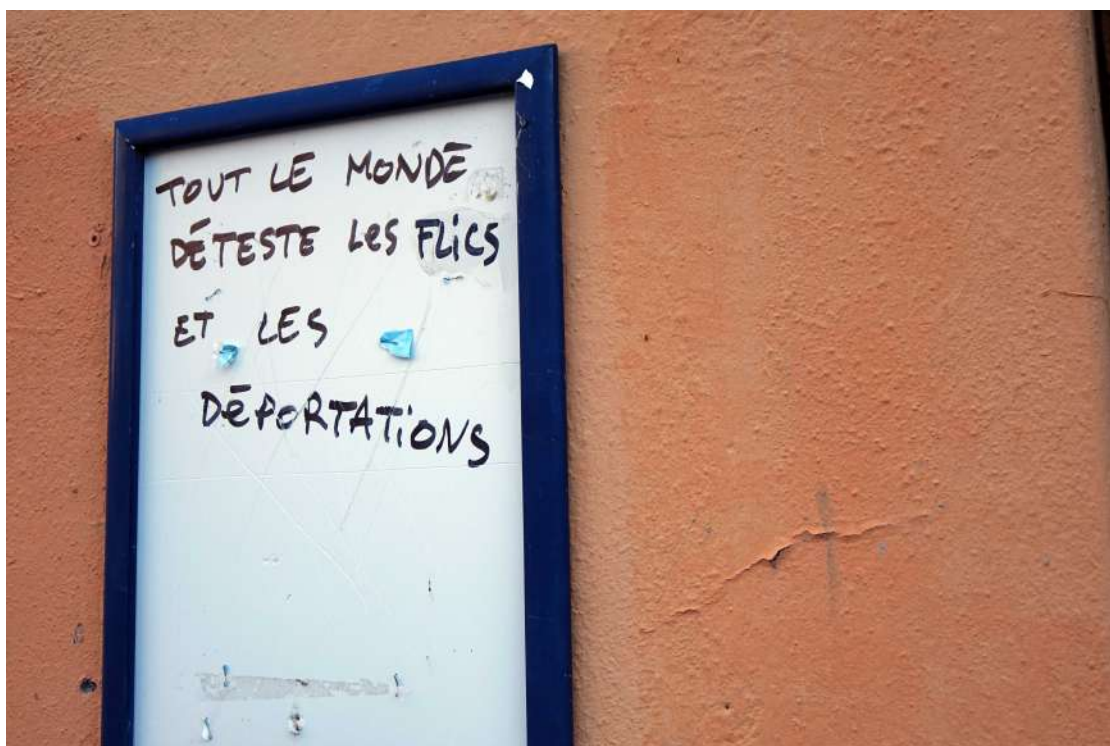 TOUT LE MONDE
DÉTESTE LES FLiCS
ET LES
DÉPORTATiONS